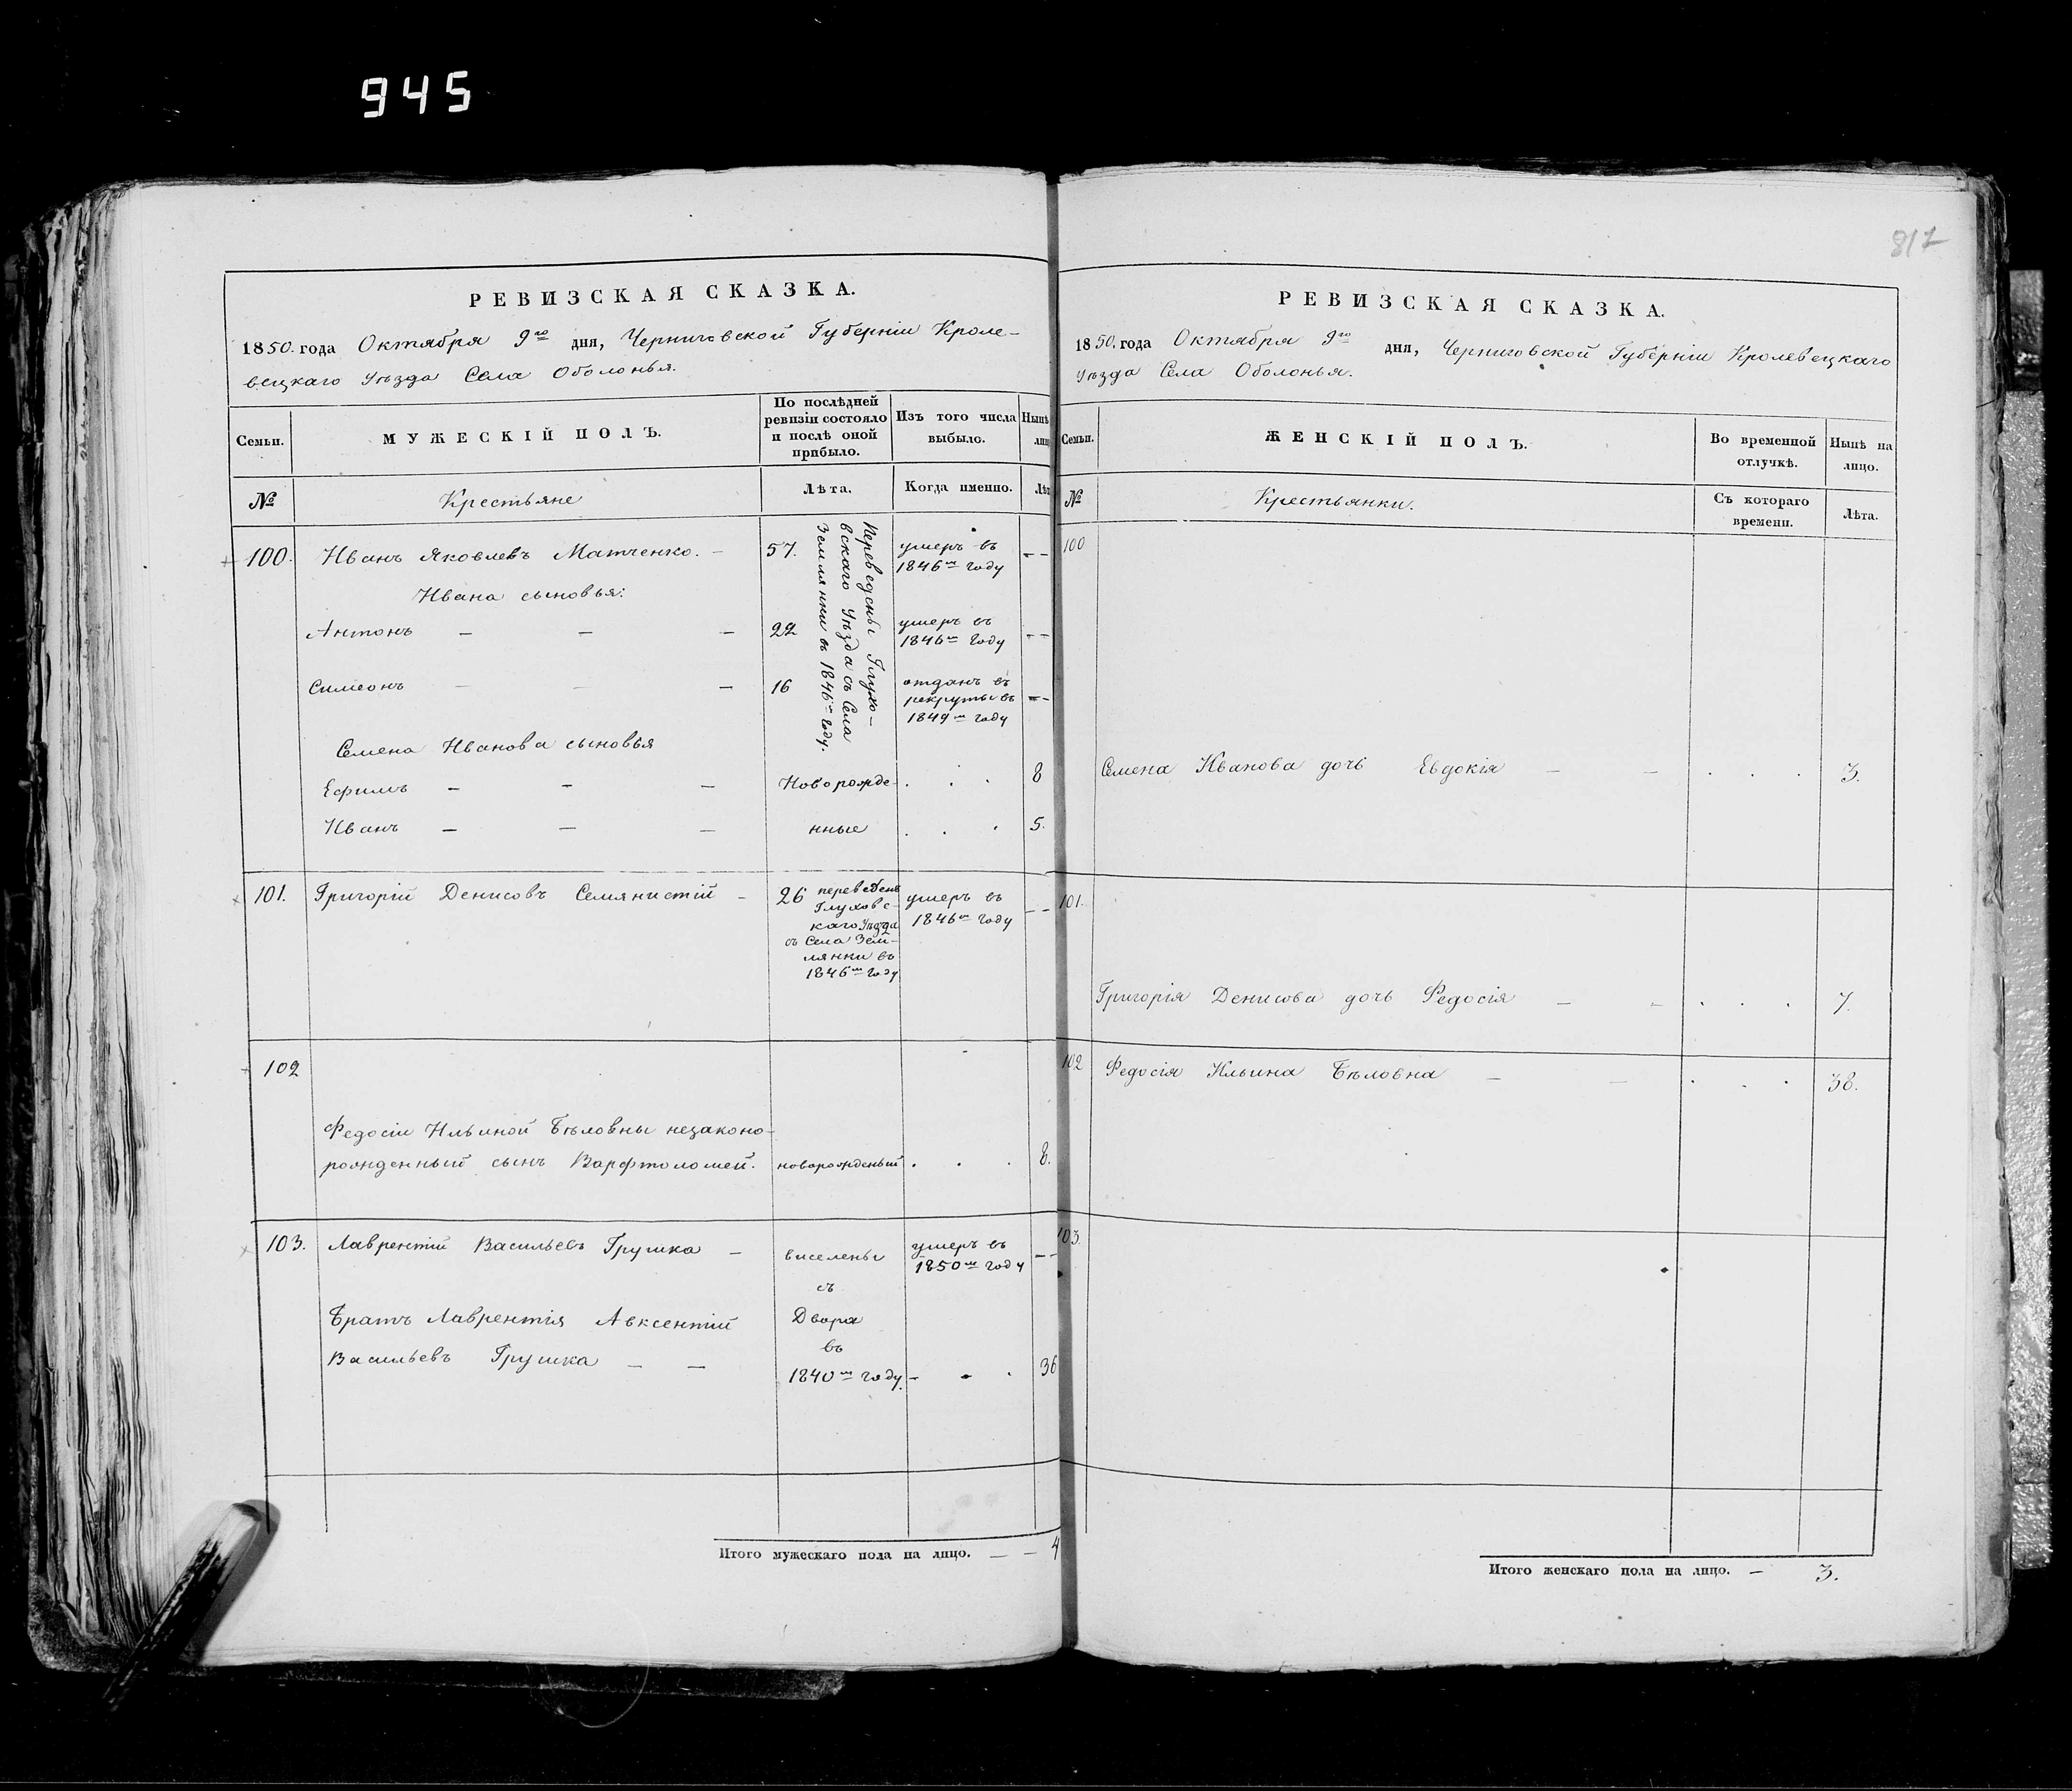 945
817
РЕВИЗСКАЯ СКАЗКА.
1850. года Октября 9го дня, Черниговской Губерніи Кроле-
вецкаго Уѣзда Села Оболонья.
Семьи.
МУЖЕСКІЙ ПОЛЪ.
По послѣдней
ревизіи состояло
и послѣ оной
прибыло.
Изъ того числа
выбыло.
Нынѣ
лиц
№
Крестьяне
Лѣта.
Когда именно.
Лѣт
100. Иванъ Яковлевъ Матченко. — 57. умеръ въ
1846м году — —
Ивана сыновья:
Антонъ — — — 22 умеръ въ
1846м году — —
Симеонъ — — — 16 отданъ въ
рекруты въ
1849м году — —
Переведены Глухо-
вскаго Уѣзда съ Села
Землянки въ 1846м году.
Семена Иванова сыновья
Ефимъ — — — Новорожде- . . . 8
Иванъ — — — нные . . . 5.
101. Григорій Денисовъ Семянистій — 26 переведенъ
Глуховс-
каго Уѣзда
съ Села Зем-
лянки въ
1846м году
умеръ въ
1846м году — —
102
Федосіи Ильиной Бѣловны незаконо-
рожденный сынъ Варфтоломей. новорожденый . . . 8.
103. Лаврентій Васильевъ Грушка — виселены
съ
Двора
въ
1840м году.
умеръ въ
1850м году — —
Братъ Лаврентія Авксентій
Васильевъ Грушка — — — . . 36
Итого мужескаго пола на лицо. — — 4
РЕВИЗСКАЯ СКАЗКА.
1850. года Октября 9го дня, Черниговской Губерніи Кролевецкаго
Уѣзда Села Оболонья.
Семьи.
ЖЕНСКІЙ ПОЛЪ.
Во временной
отлучкѣ.
Нынѣ на
лицо.
№
Крестьянки.
Съ котораго
времени.
Лѣта.
100
Семена Иванова дочь Евдокія — — . . . 3.
101.
Григорія Денисова дочь Федосія — — . . . 7.
102 Федосія Ильина Бѣловна — — . . . 38.
103.
Итого женскаго пола на лицо. — 3.